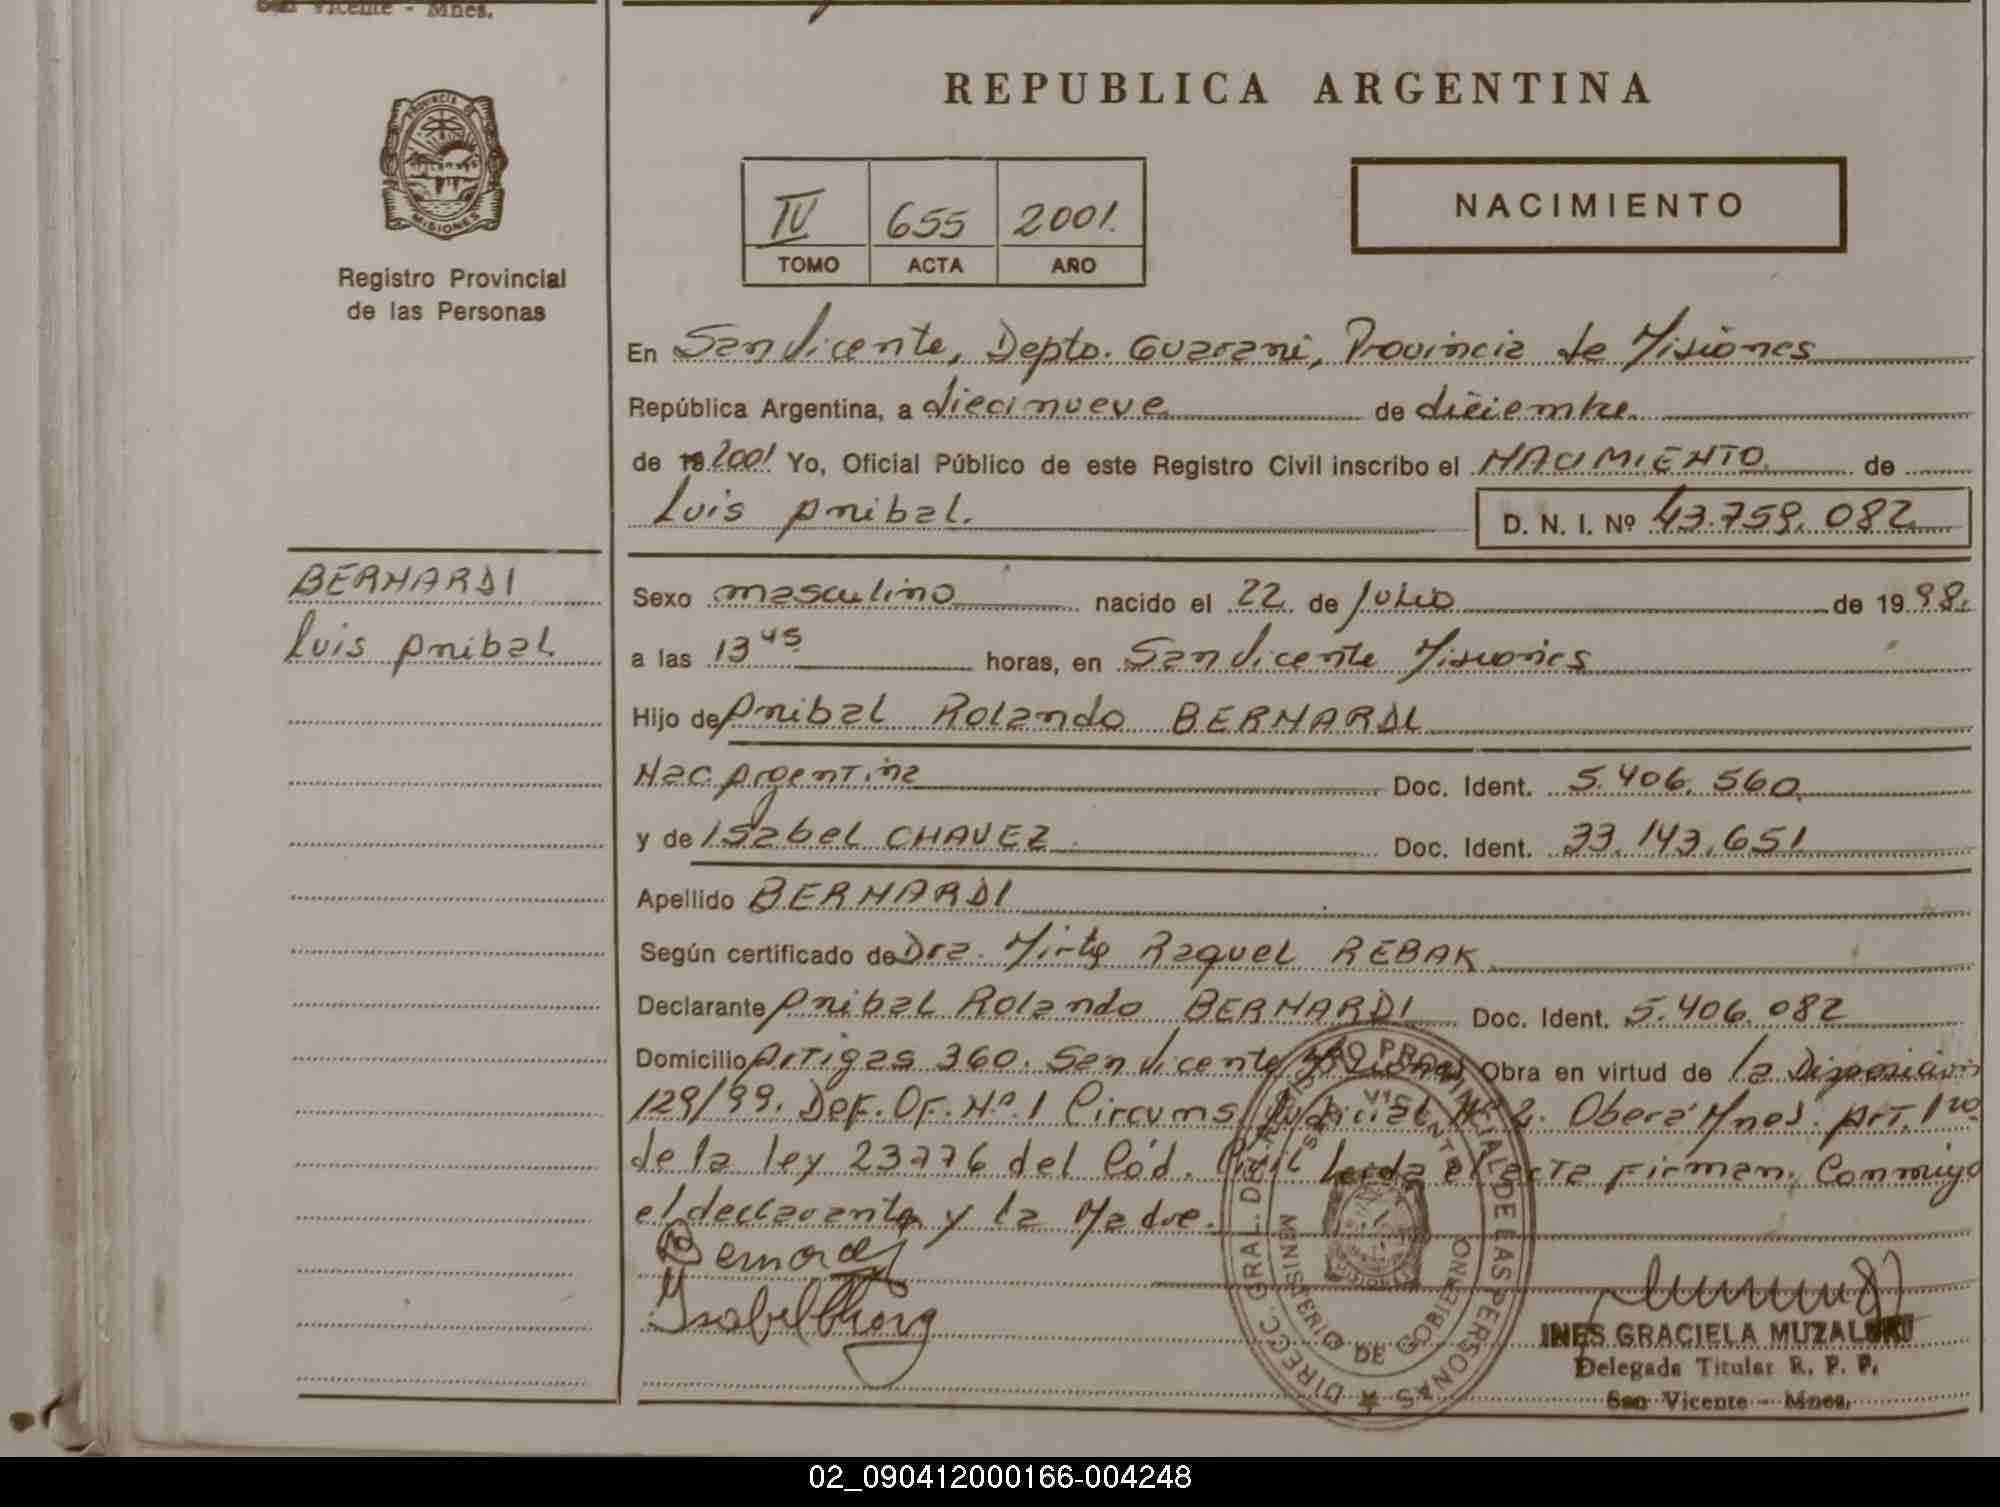 San Vicente - Mnes.
PROVINCIA DE
MISIONES
Registro Provincial
de las Personas
BERNARDI
Luis Anibal
REPUBLICA ARGENTINA
IV 655 2001.
TOMO ACTA AÑO
NACIMIENTO
En San Vicente, Depto. Guarani, Provincia de Misiones
República Argentina, a diecinueve de diciembre
de 19 2001 Yo, Oficial Público de este Registro Civil inscribo el NACIMIENTO de
Luis Anibal. D. N. I. Nº 43.759.082
Sexo masculino nacido el 22 de Julio de 19 98.
a las 13 45 horas, en San Vicente Misiones
Hijo de Anibal Rolando BERNARDI
Nac. Argentina Doc. Ident. 5.406.560
y de Isabel CHAVEZ Doc. Ident. 33.143.651
Apellido BERNARDI
Según certificado de Dra. Mirta Raquel REBAK
Declarante Anibal Rolando BERNARDI Doc. Ident. 5.406.082
Domicilio Artigas 360. San Vicente Misiones Obra en virtud de la Disposición
129/99. Def. Of. Nº 1 Circuns. Judicial Nº 2. Oberá Mnes. Art. 1ro
de la ley 23776 del Cód. Civil Leida el acta firman. Conmigo
el declarante y la Madre.
Bernardi
Isabel Chavez
DIRECC. GRAL. DEL REGISTRO PROVINCIAL DE LAS PERSONAS
SAN VICENTE
MINISTERIO DE GOBIERNO
INES GRACIELA MUZALSKI
Delegada Titular R. P. P.
San Vicente - Mnes.
02_090412000166-004248